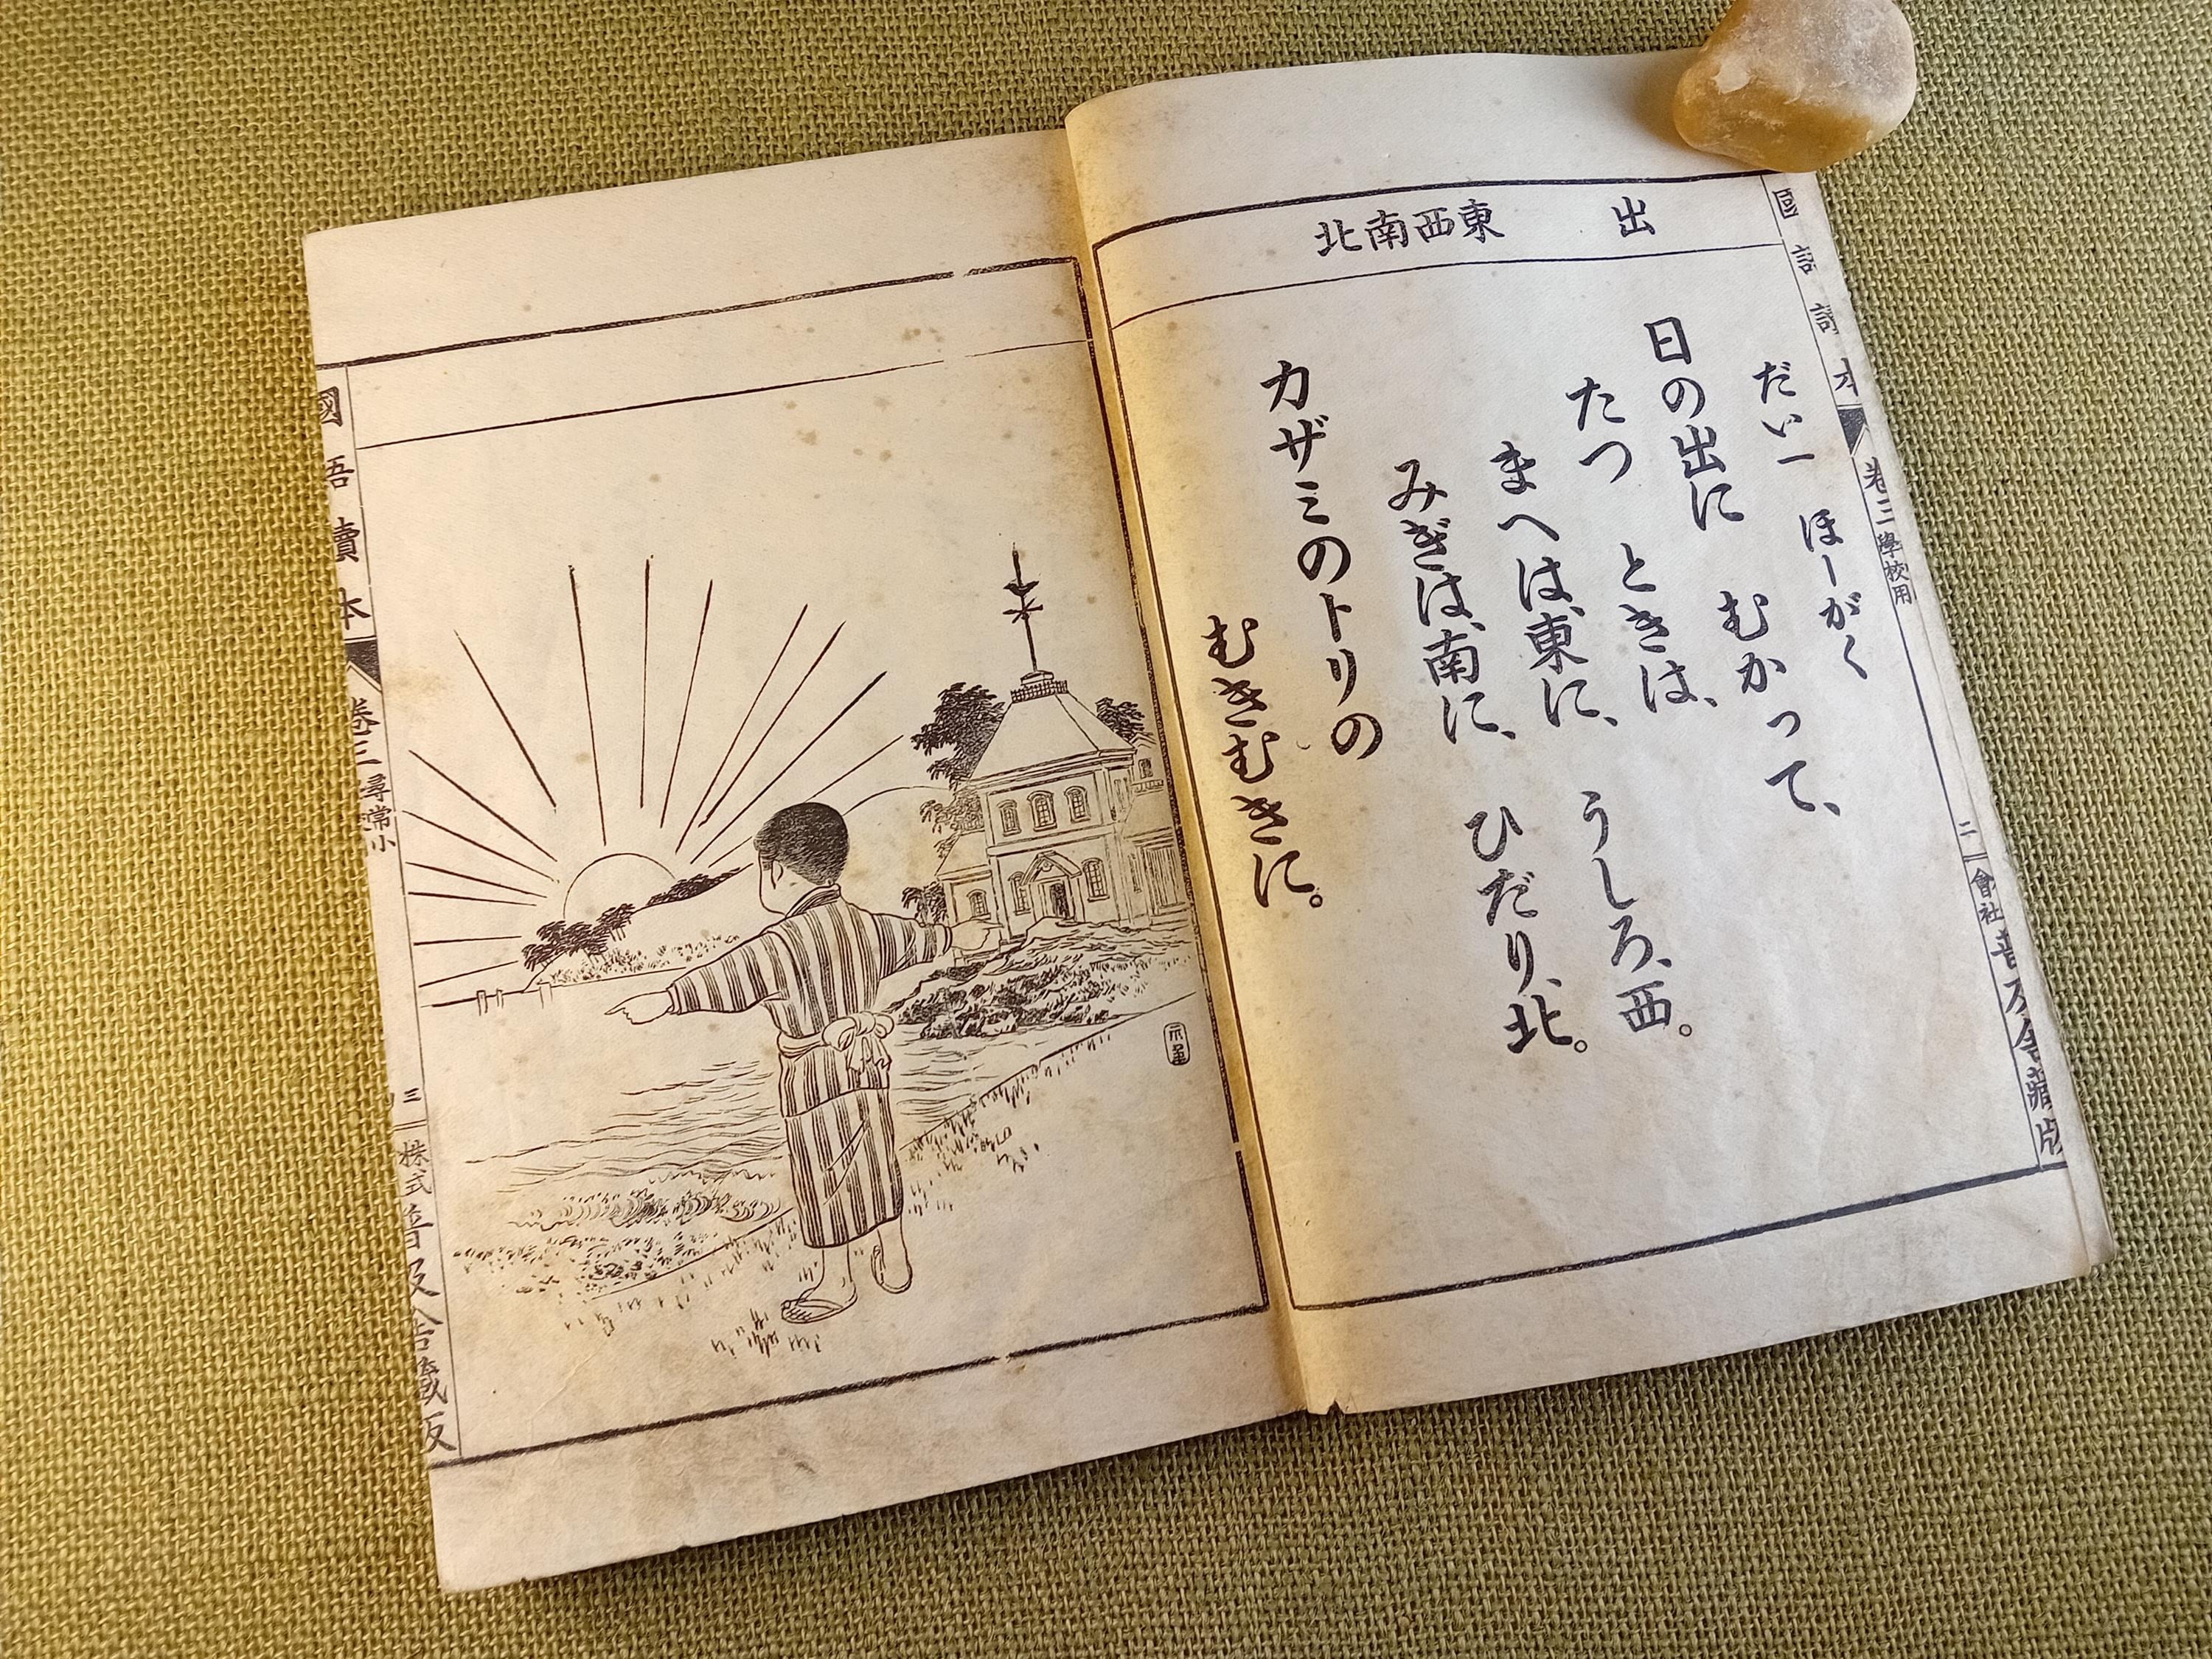 國語讀本
卷三 學校用
二
會社普及舍藏版
出
北南西東
だい一 ほーがく
日の出に むかって、
たつ ときは、
まへは、東に、 うしろ、西。
みぎは、南に、 ひだり、北。
カザミのトリの
むきむきに。
國語讀本
卷三 尋常小
三
株式
普及舍藏版